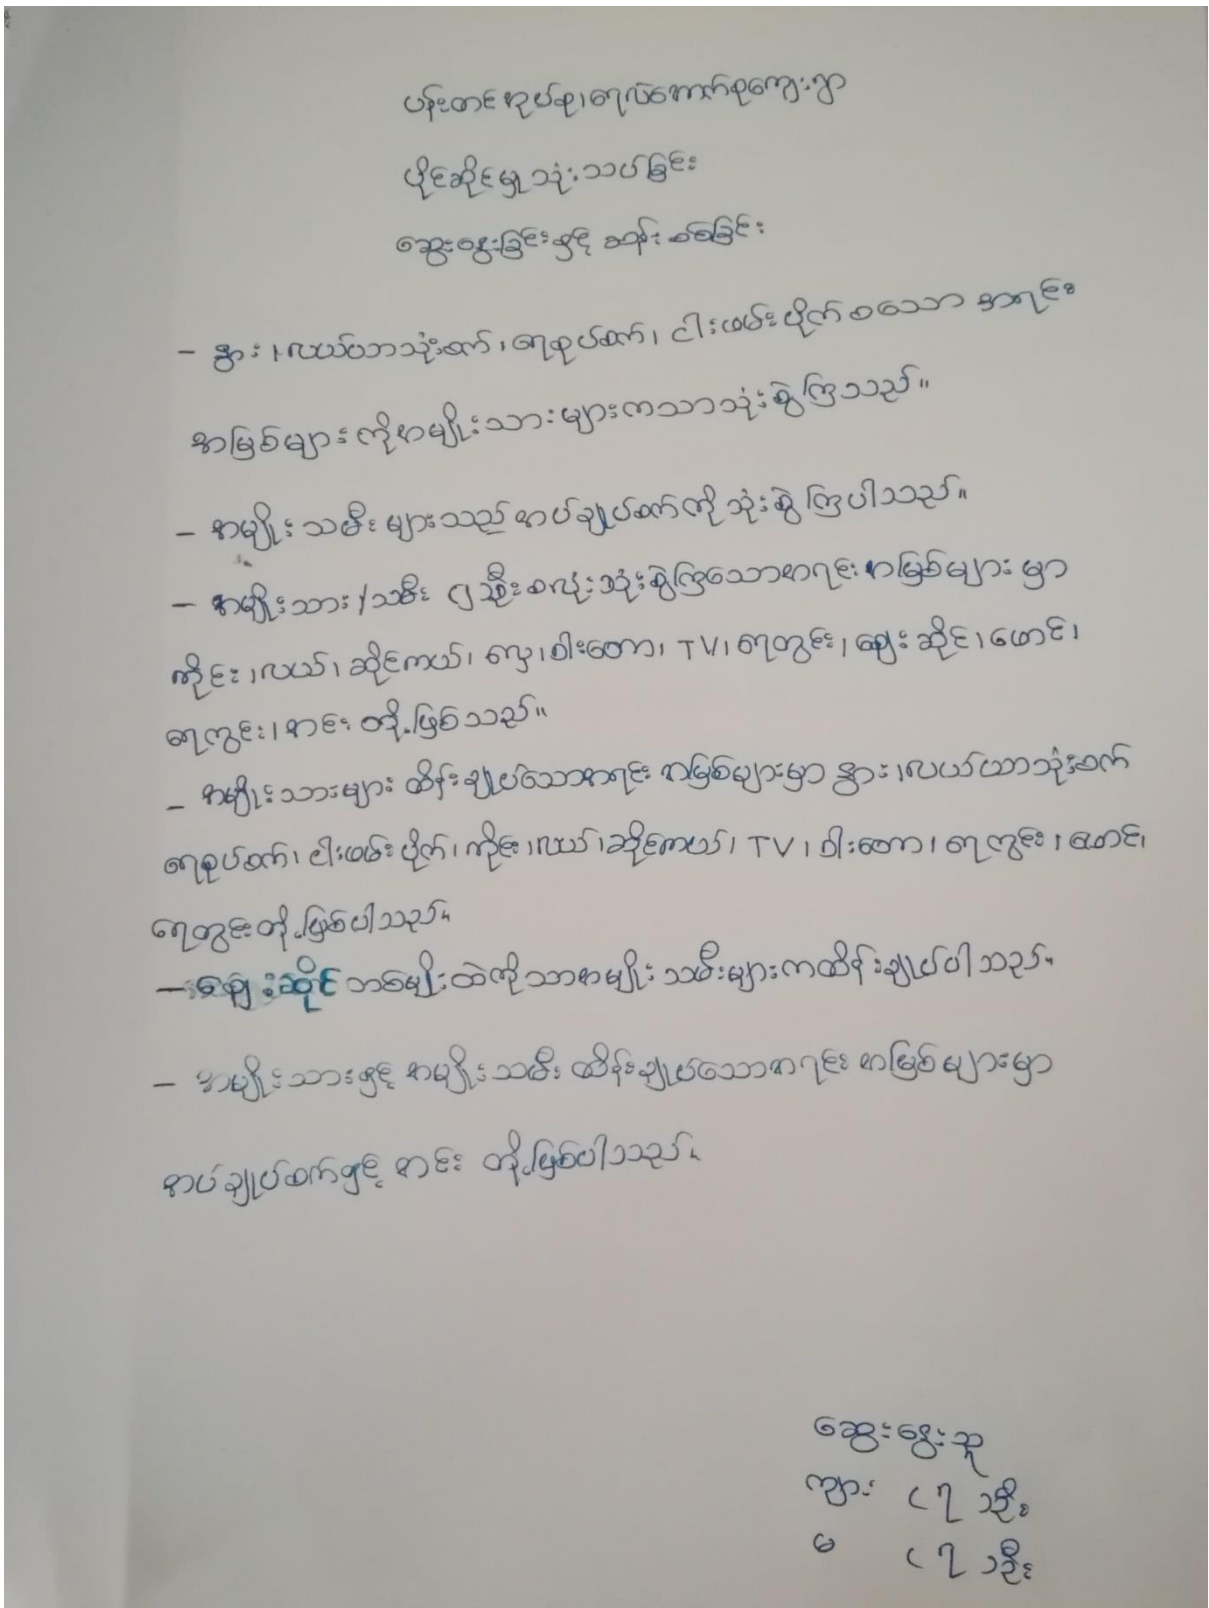 ပန်းတင်အုပ်စု၊ရေလဲအောက်စုကျေးရွာ
ပိုင်ဆိုင်မှု သုံးသပ်ခြင်း
ဆွေးနွေးခြင်းနှင့် ဆန်းစစ်ခြင်း
- နွား၊လယ်ယာသုံးစက်၊ရေစုပ်စက်၊ ငါးဖမ်းပိုက် စသော အရင်း
အမြစ်များကိုအမျိုးသားများကသာသုံးစွဲကြသည်။
- အမျိုးသမီးများသည် အပ်ချုပ်စက်ကို သုံးစွဲကြပါသည်။
- အမျိုးသား/သမီး ၂ ဦးစလုံးသုံးစွဲကြသောအရင်းအမြစ်များမှာ
ကိုင်း၊လယ်၊ ဆိုင်ကယ်၊ လှေ၊ဝါးတော၊ TV၊ ရေတွင်း၊ ဈေးဆိုင်၊ဖောင်၊
ရေကွင်း၊အင်း တို့ဖြစ်သည်။
- အမျိုးသားများ ထိန်းချုပ်သောအရင်းအမြစ်များမှာ နွား၊လယ်ယာသုံးစက်
ရေစုပ်စက်၊ ငါးဖမ်းပိုက်၊ ကိုင်း၊လယ်၊ဆိုင်ကယ်၊ TV၊ ဝါးတော၊ ရေကွင်း၊ ဖောင်၊
ရေတွင်းတို့ဖြစ်ပါသည်။
- ဈေးဆိုင် တစ်မျိုးထဲကိုသာအမျိုးသမီးများကထိန်းချုပ်ပါသည်။
- အမျိုးသားနှင့် အမျိုးသမီး ထိန်းချုပ်သောအရင်းအမြစ်များမှာ
အပ်ချုပ်စက်နှင့် အင်း တို့ဖြစ်ပါသည်။
ဆွေးနွေးသူ
ကျား ၎ ဦး
မ ၎ ဦး